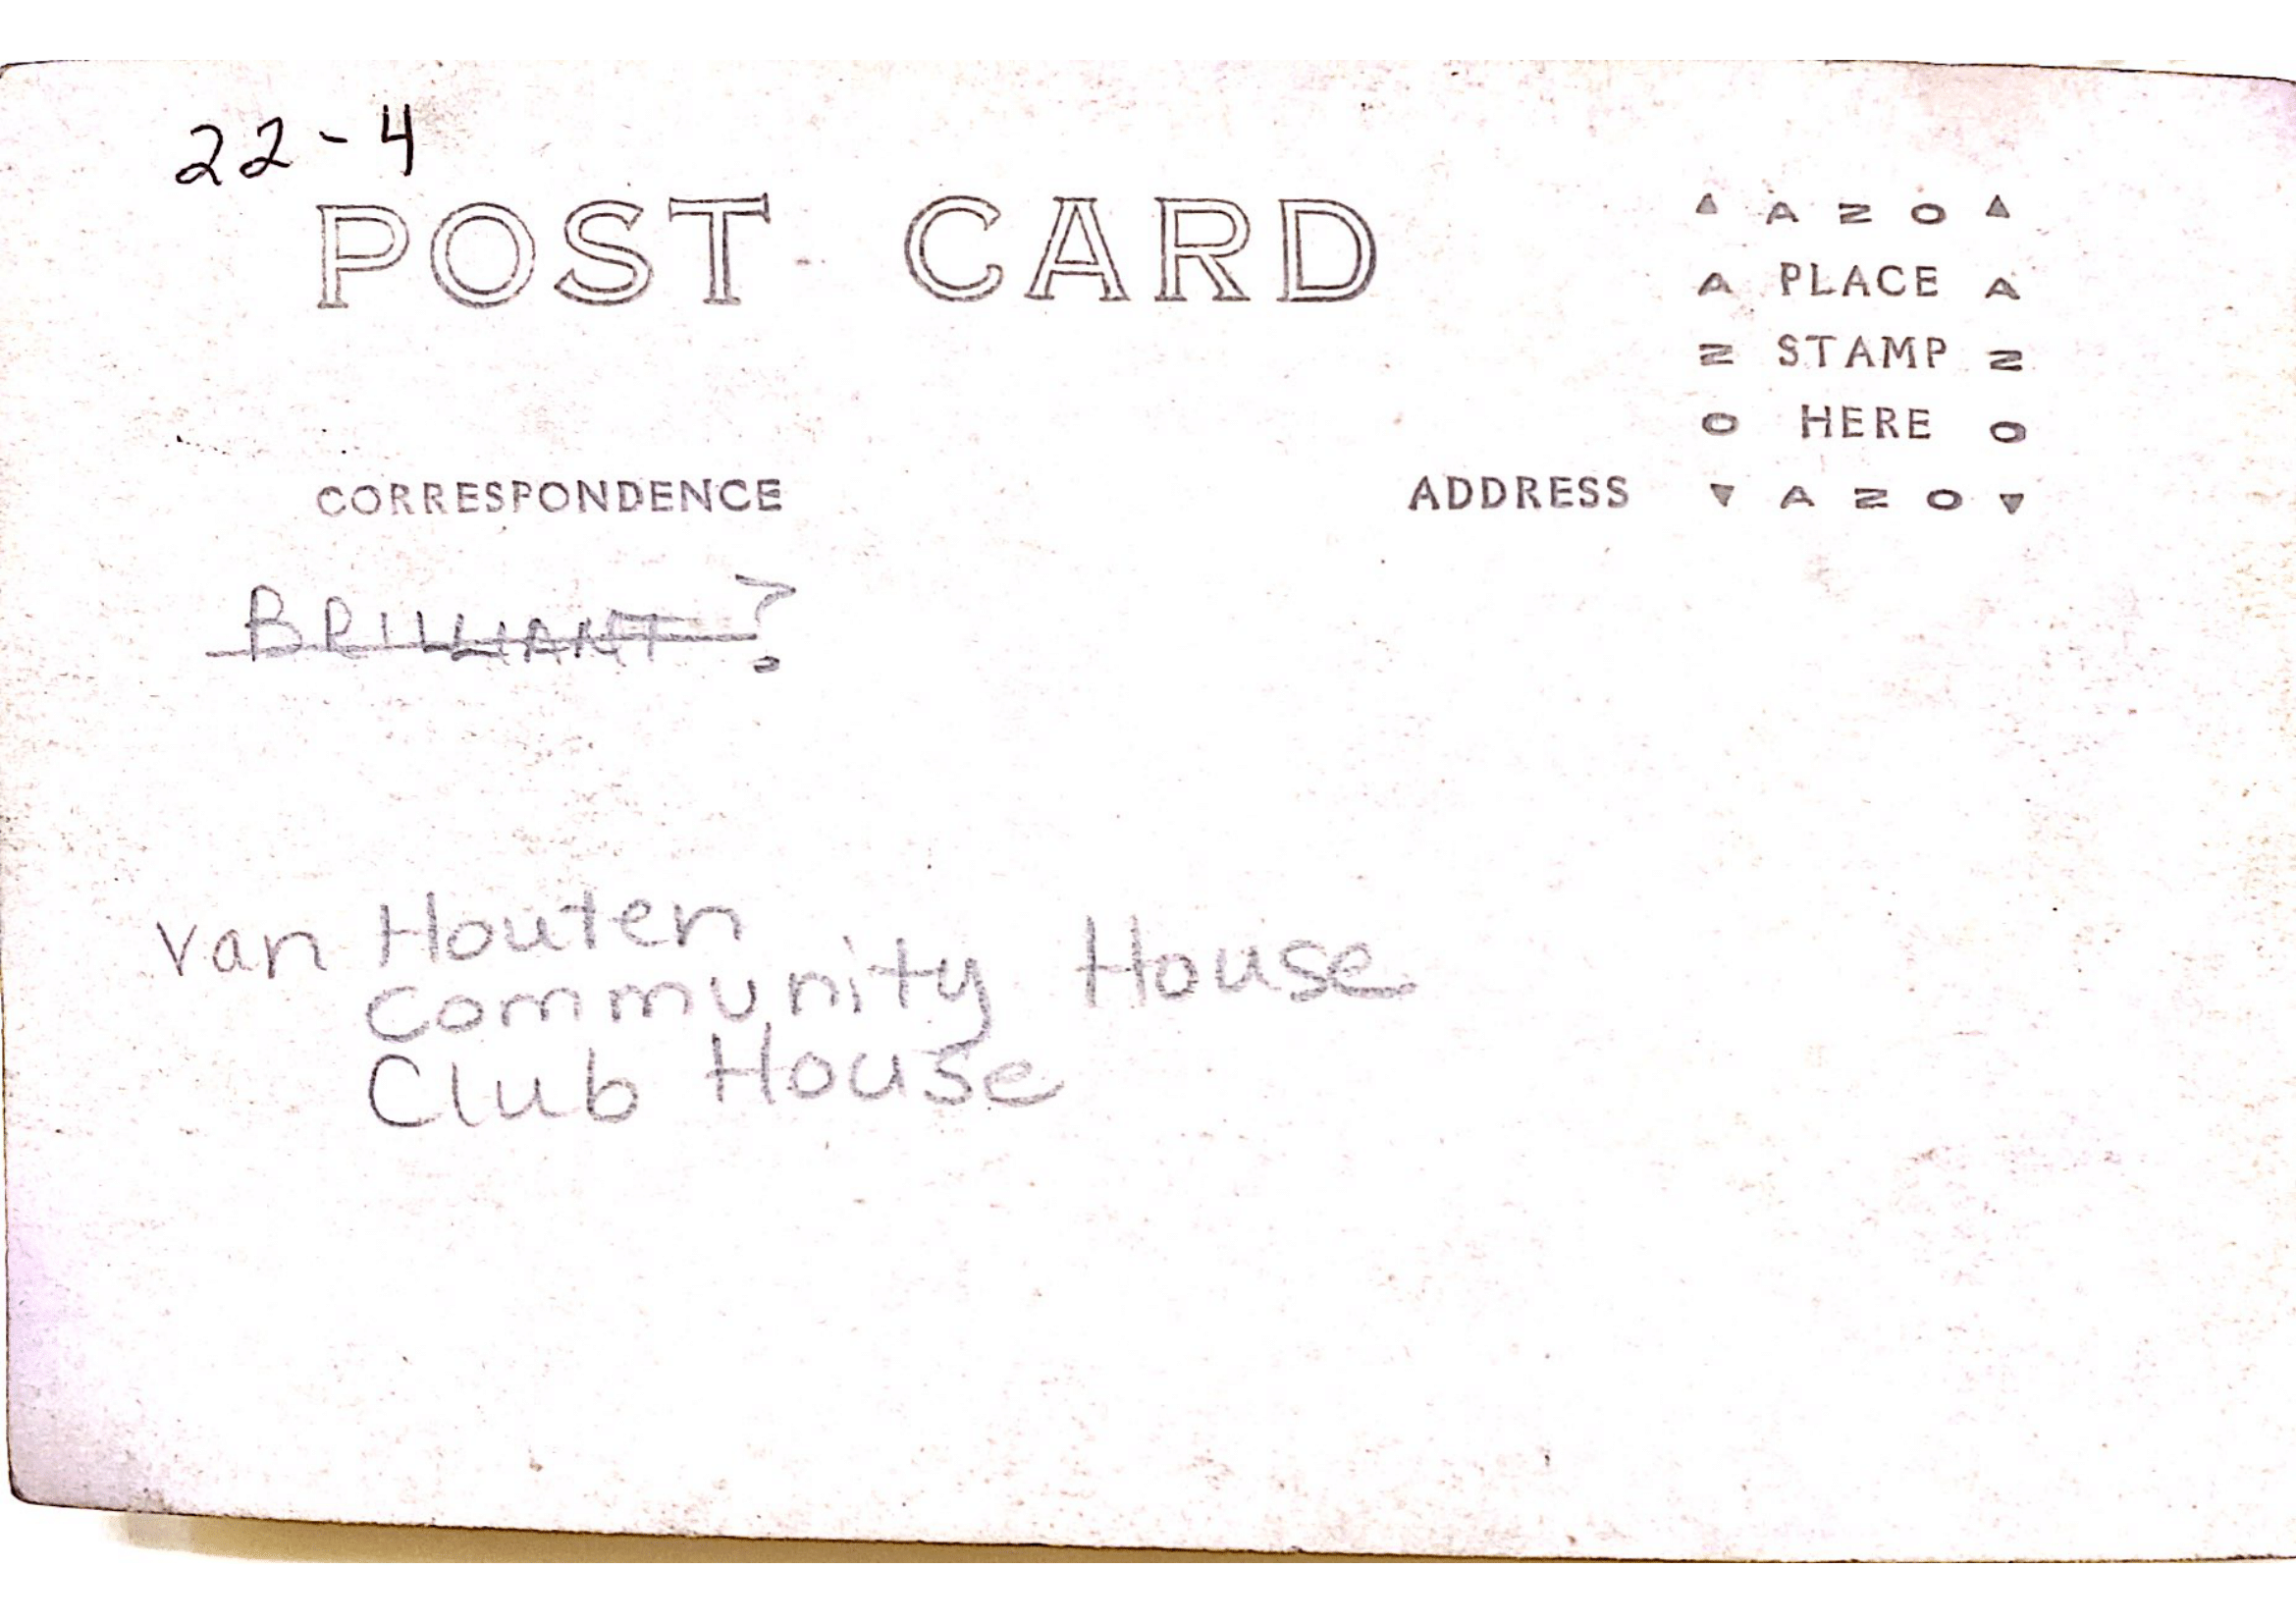 22-4
POST CARD
▲ A Z O ▲
A PLACE A
Z STAMP Z
O HERE O
▼ A Z O ▼
CORRESPONDENCE
ADDRESS
BRILLIANT?
Van Houten
Community House
Club House